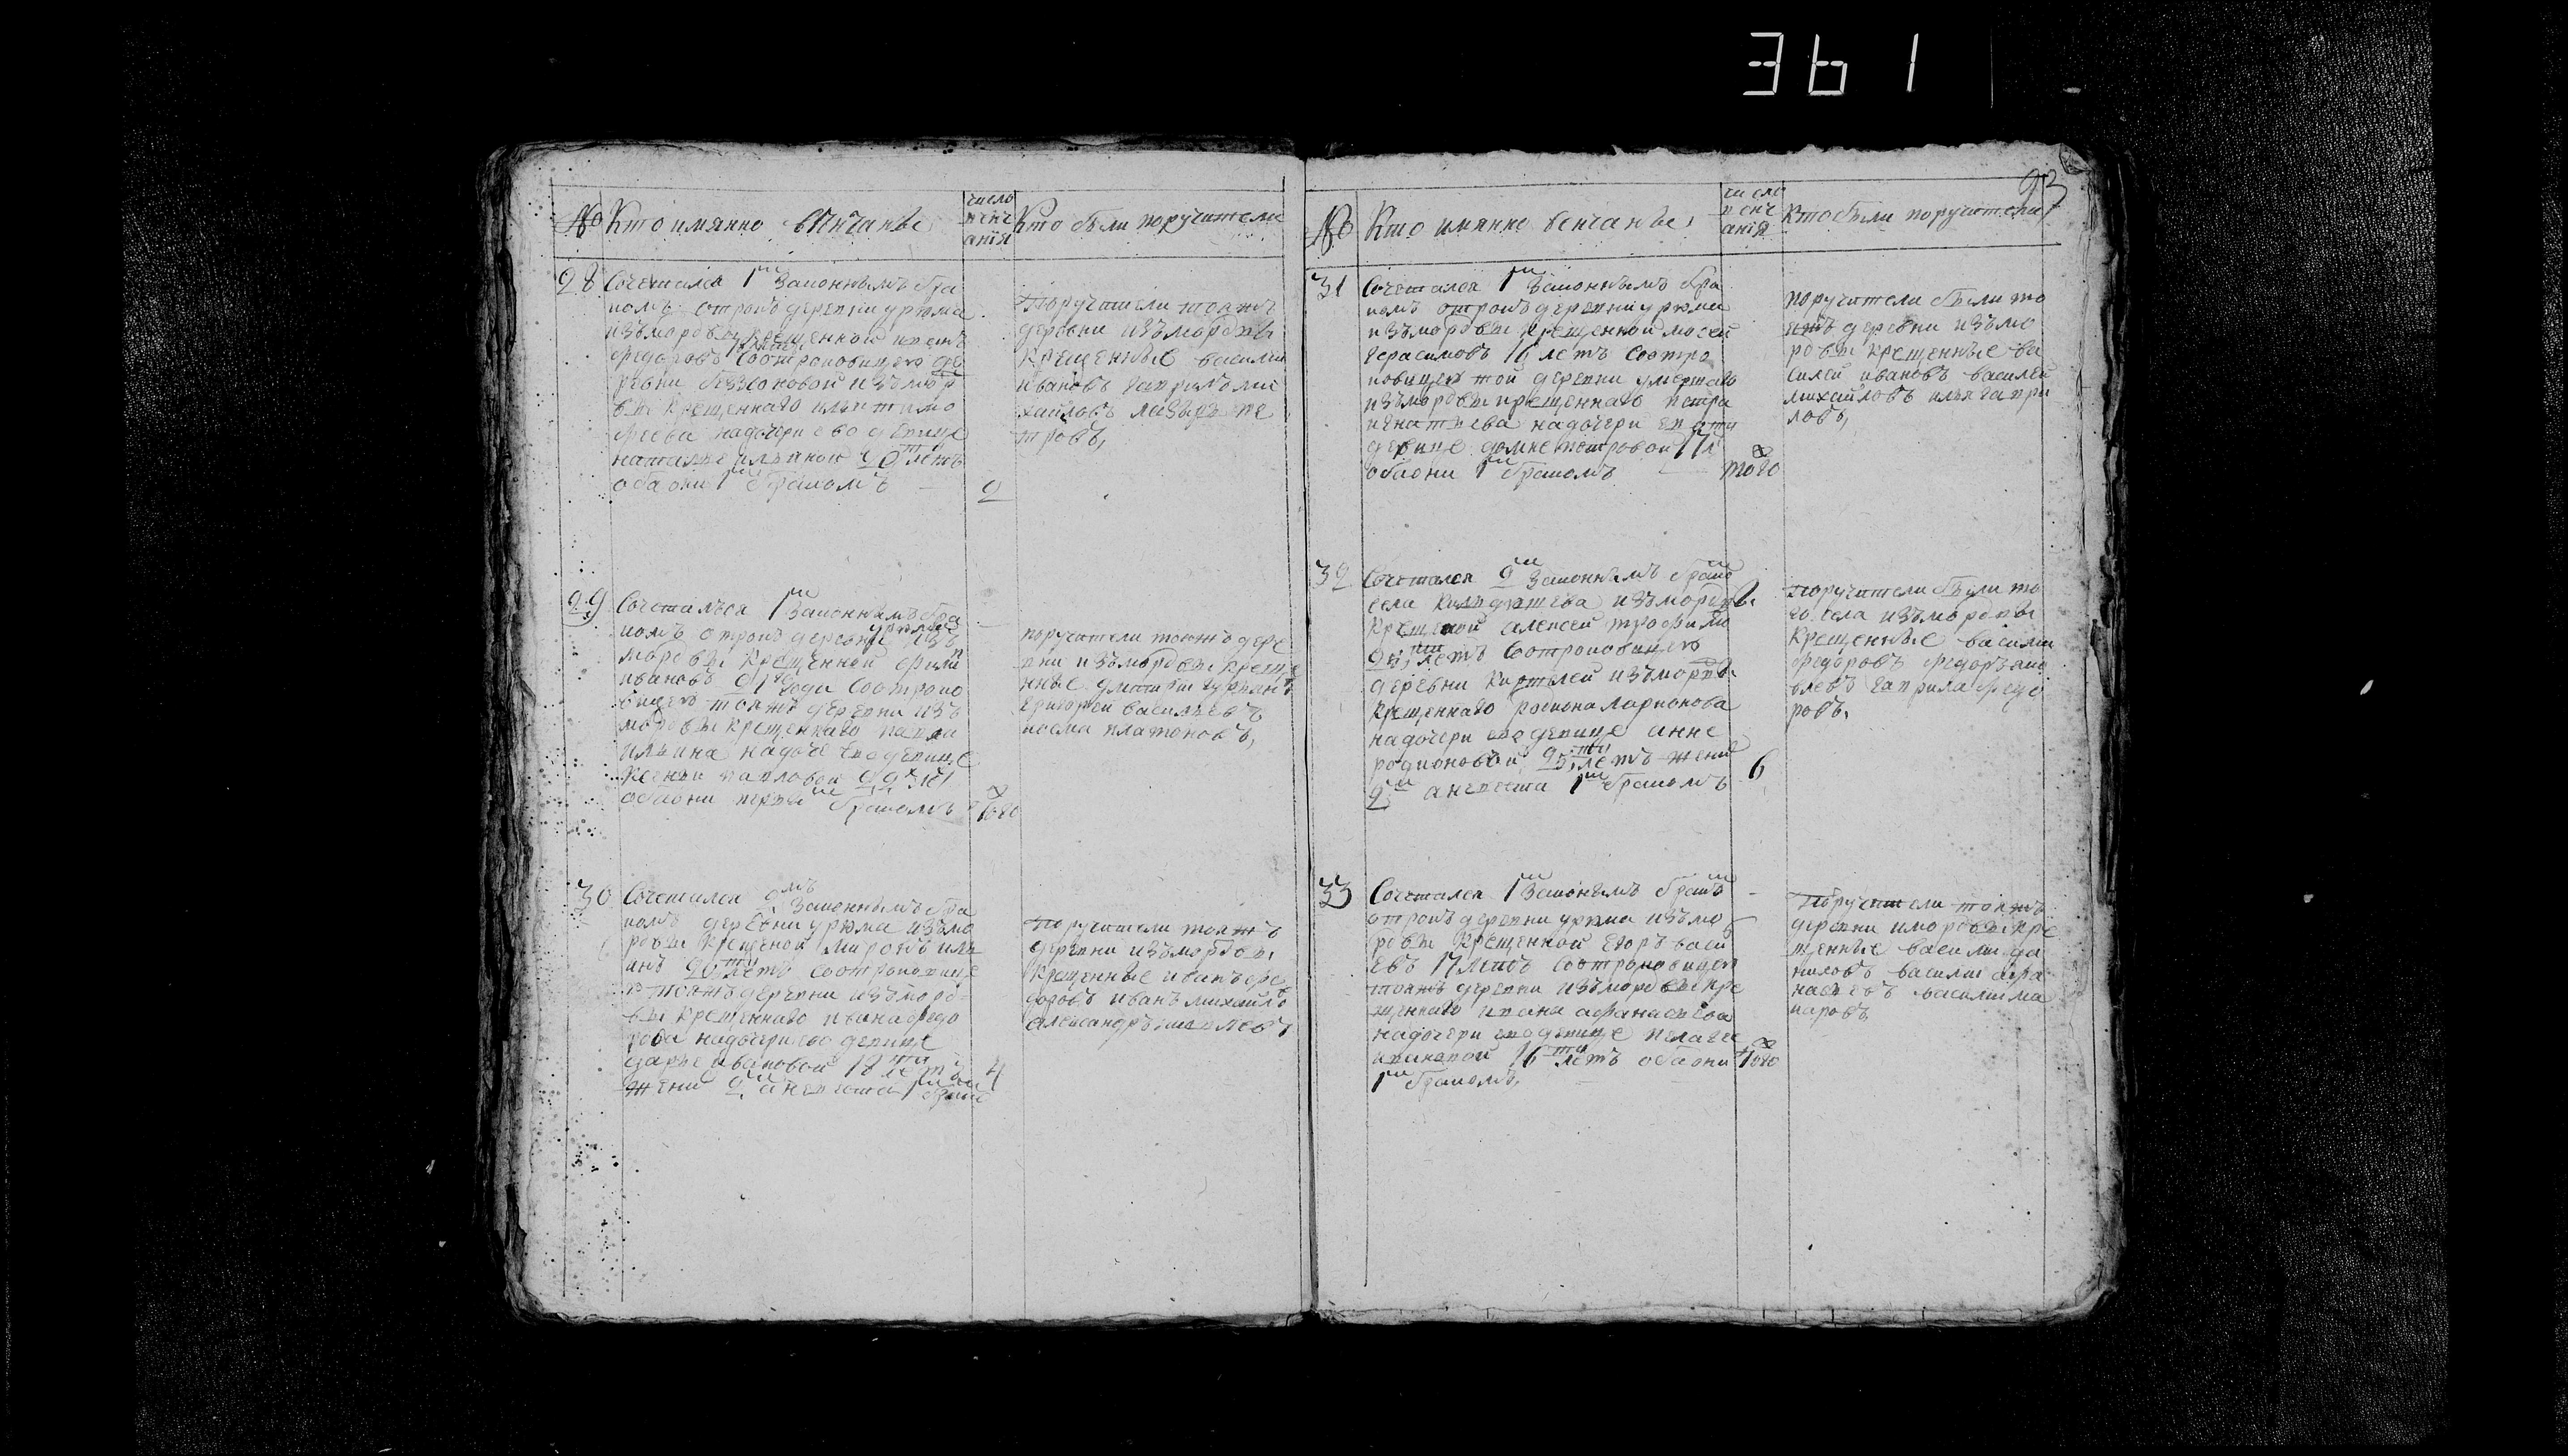 361
93
№ Кто имянно вѣнчаны
число
венч
анїя
Кто были поручители
28 Сочетался 1м законнымъ бра
комъ отрокъ деревни урюма
изъ мордвы крещенной
федоровъ соотроковицею де
ревни изъ мор
двы крещеннаго ильи тимо
феева на дочери ево девице
наталье ильиной 20ти летъ
оба они 1м бракомъ
2
Поручители тояжъ
деревни изъ мордвы
крещенные василий
ивановъ гаврилъ ми
хайловъ пе
тровъ,
29 Сочетался 1м законнымъ бра
комъ отрокъ деревни урюма изъ
мордвы крещенной филип
ивановъ 21го года соотроко
вицею тояжъ деревни изъ
мордвы крещеннаго павла
ильина на доче ево девице
павловой 22х ле
оба они первым бракомъ
того
поручители тояжъ дере
вни изъ мордвы креще
нные дмитрий
григорей васильевъ
козма платоновъ,
30 Сочетался 2мъ законнымъ бра
комъ деревни урюма изъ мо
рдвы крещеной миронъ иль
инъ 20ти летъ соотроковице
ю тояжъ деревни изъ морд
вы крещеннаго ивана федо
рова на дочери ево девице
дарье ивановой 18ти летъ
жених 2м а невеста 1м браком
4
Поручители тояжъ
деревни изъ мордвы
крещенные иванъ фе
доровъ иванъ михайло
александръ
№ Кто имянно венчаны
число
венч
анїя
Кто были поручители
31 Сочетался 1м законнымъ бра
комъ отрокъ деревни урюма
изъ мордвы крещенной мосей
герасимовъ 16 летъ соотро
ковицею той деревни умершаго
изъ мордвы крещеннаго петра
игнатьева на дочери ево
девице домне петровой 17
оба они 1м бракомъ
того
поручители были то
яжъ деревни изъ мо
рдвы крещенные ва
силей ивановъ василей
михайловъ илья гаври
ловъ,
32 Сочетался 2м законнымъ браком
села кильдюшева изъ мордвы
крещеной алексей трофимо
25ти летъ соотроковицею
деревни изъ мордв
крещеннаго родиона ларионова
на дочери ево девице анне
родионовой 25ти летъ жених
2м а невеста 1м бракомъ
6
Поручители были то
го села изъ мордвы
крещенные василий
федоровъ федоръ яко
влевъ гаврила федо
ровъ,
33 Сочетался 1м законымъ браком
отрокъ деревни урюма изъ мо
рдвы крещенной егоръ васил
евъ 17 летъ соотроковицею
тояжъ деревни изъ мордвы кре
щеннаго ивана афанасьева
на дочери ево девице пелагее
ивановой 16ти летъ оба они
1м бракомъ,
того
Поручители тояжъ
деревни имордвы кре
щенные василий да
ниловъ василий афа
насьевъ василий ма
каровъ